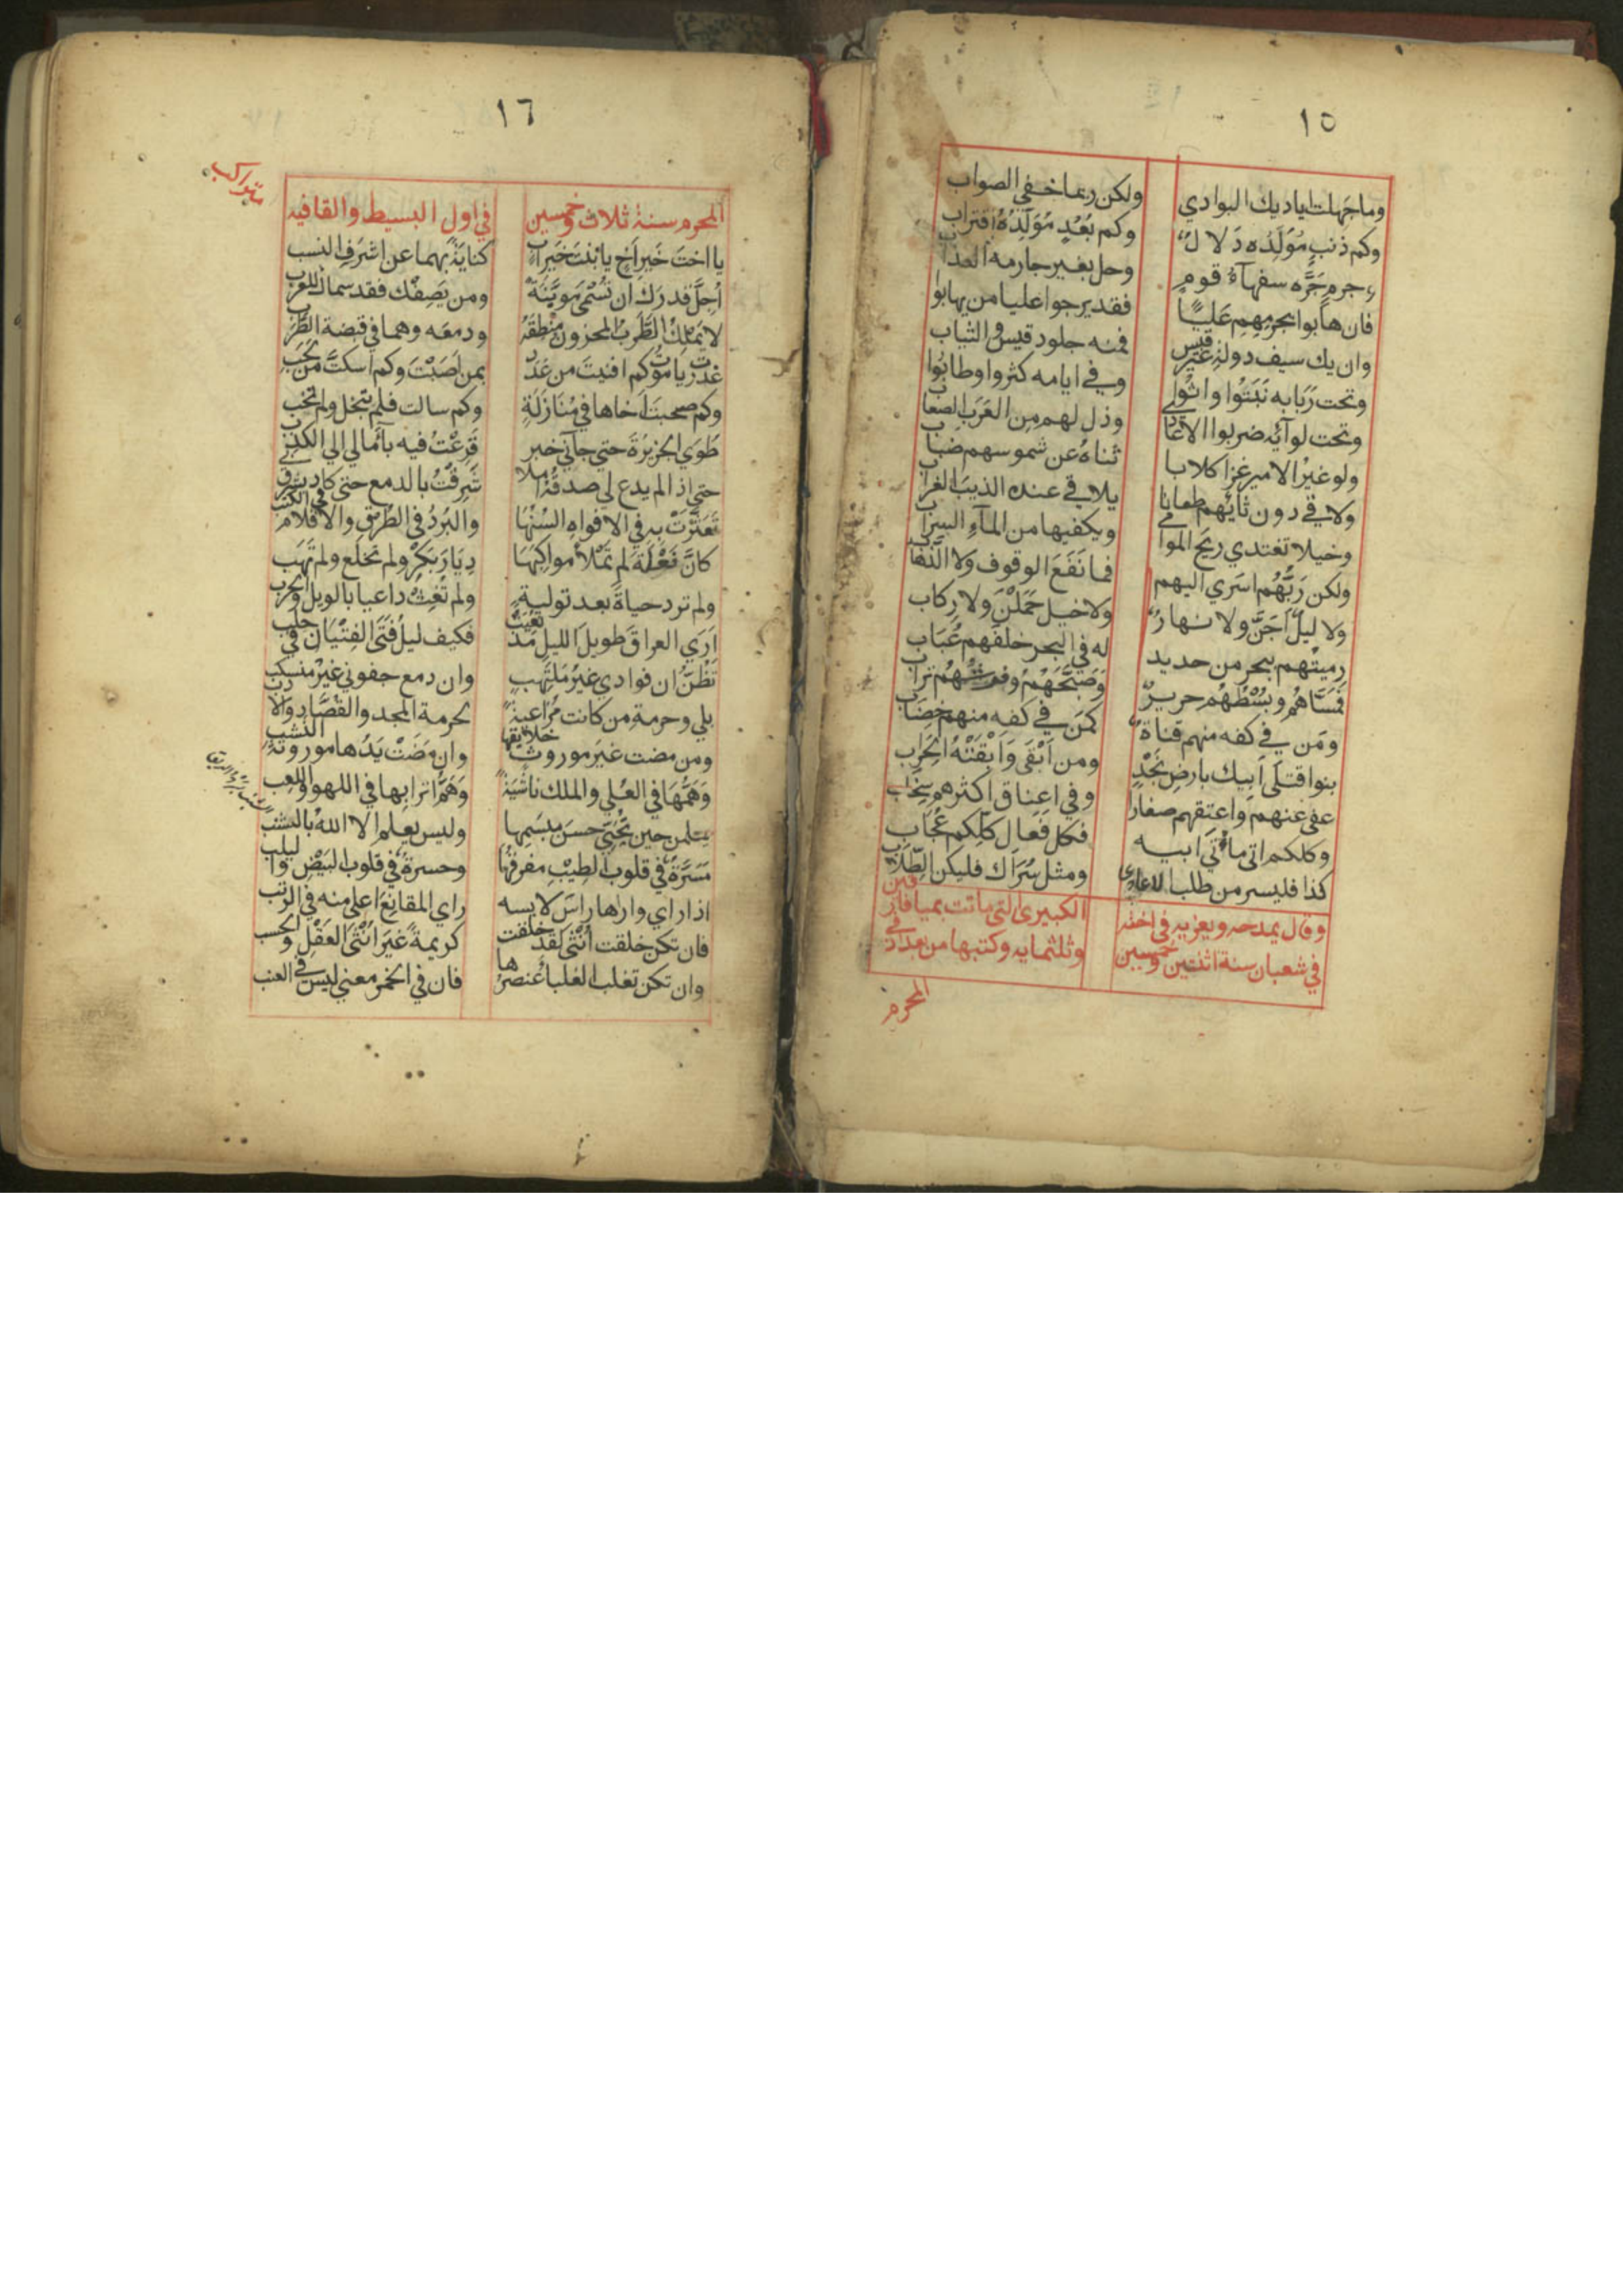 ١٥
وما جهلت اياديك البوادي ولكن ربما خفي الصواب
وكم ذنب مُوَلِّدُه دَلالٌ وكم بُعْدٍ مُوَلِّدُهُ اقتراب
وجرمٍ جَرَّه سفهآءُ قومٍ وحل بغير جارمه العذاب
فان هابوا بجرمهم عَلِيًّا فقد يرجوا عليا من يهابوا
وان يك سيف دولة غير قيس فمنه جلود قيس والثياب
وتحت رَبَابه نَبَتُوا واثوا وفي ايامه كثروا وطابُوا
وتحت لوآئه ضربوا الاعادي وذل لهم مِن العَرَب الصعاب
ولو غيرُ الامير غزا كلابا ثناهُ عن شموسهم ضباب
ولاقي دون ثائهم طعانا يلاقي عنده الذيبَ الغراب
وخيلا تغتدي ريحَ الموامي ويكفيها من المآءِ السراب
ولكن رَبُّهُم اسَري اليهم فما نَفَعَ الوقوف ولا الذَّهاب
ولا ليلٌ اَجَنَّ ولا نهارٌ ولا خيل حَمَلْنَ ولا رِكاب
رميتهم ببحر من حديد له في البحر خلفهم عُبَاب
فَمَسَّاهُم وبُسْطُهُم حريرٌ وَصَبَّحَهُمْ وفرشهُم تراب
ومَن في كفه منهم قناة كمَن في كفه منهم خِضَاب
بنوا قتلَى اَبيك بارضِ نَجْدٍ ومن اَبْقَى وَاَبْقَتْهُ الحِرَاب
عفى عنهم وَاعتقهم صغارا وفي اعناق اكثرهم سِخَاب
وكلكم اتى ماتَي ابيه فكل فَعال كلّكم عُجَاب
كذا فليسر من طلب الاعادي ومثل سُرَاك فليكن الطِّلاب
وقال يمدحه ويعزيه في اخته الكبيرى التي ماتت بميا فارقين
في شعبان سنة اثنتين وخمسين وثلثمايه وكتبها من بغداد في
المحرم
١٦
المحرم سنة ثلاث وخمسين في اول البسيط والقافيه
متراكب
يا اختَ خَيرِ اَخٍ يا بْنتَ خَيرِ ابٍ كنايَةً بهما عن اشرَفِ النسب
اُجِلّ قدرَك ان تُسْمَي مُوَيَّنَةً ومن يَصِفْك فقد سماك للعرب
لا يَمْلِكُ الطَّرِبُ المحزون منطقَهُ ودمعَه وهما في قبضة الطَّرَب
غدرت يا مَوْتُ كم افنيتَ من عَدَدٍ بمن اَصَبْتَ وكم اسكتَّ من لَجَب
وكم صحبتَ اَخاها في مُنَازَلَةٍ وكم سالت فلم يَبخل ولم تخب
طَوَي الجزيرَةَ حتي جآني خبر فَزِعْتُ فيه بآمالي الي الكذب
حتي اذا لم يدع لي صدقُهُ املا شَرِقْتُ بالدمع حتي كاد يشرق بي
تَعَثَّرَتْ به في الافواهِ السُنُهَا والبَرْدُ في الطُرقِ والاقلام في الكتب
كانَّ فَعْلَةَ لم تَمْلأ مواكِبُهَا دِيَارَ بَكْرٍ ولم تخلَع ولم تَهَب
ولم ترد حياةً بعد توليةٍ ولم تُغِثْ داعيا بالويل والحرب
اَرَي العراقَ طويلَ الليل مُذ نُعِيَتْ فكيف ليلُ فَتَى الفِتْيَان في حلب
تَظُنُّ ان فوادي غيرُ مُلْتَهبٍ وان دمع جفوني غيرْ منسكب
بلي وحرمةِ من كانت مُرَاعيةً لحرمة المجد والقُصَّاد والادب
ومن مضت غيرَ موروثٍ خلائقها وان مَضَتْ يَدُها موروثة النشب
وَهَمُّهَا في العُلي والملك ناشيَةً وَهَمُّ اترابِها في اللهو واللعِب
يعلمن حين تُحَيّي حسنَ مبسَمِها وليس يعلم الا الله بالشنب
مَسَرَّةٌ في قلوب الطِيْبِ مفرقُها وحسرةٌ في قلوب البَيْضِ واليلب
اذا راي وراها راسَ لابسه راي المقانِعَ اعلي منه في الرتب
فان تكن خلقت اُنثَى لقد خلقت كريمةً غيرَ اُنْثَى العَقْلِ والحسب
وان تكن تغلب الغلبا عُنصرُها فان في الخمر معني ليس في العنب